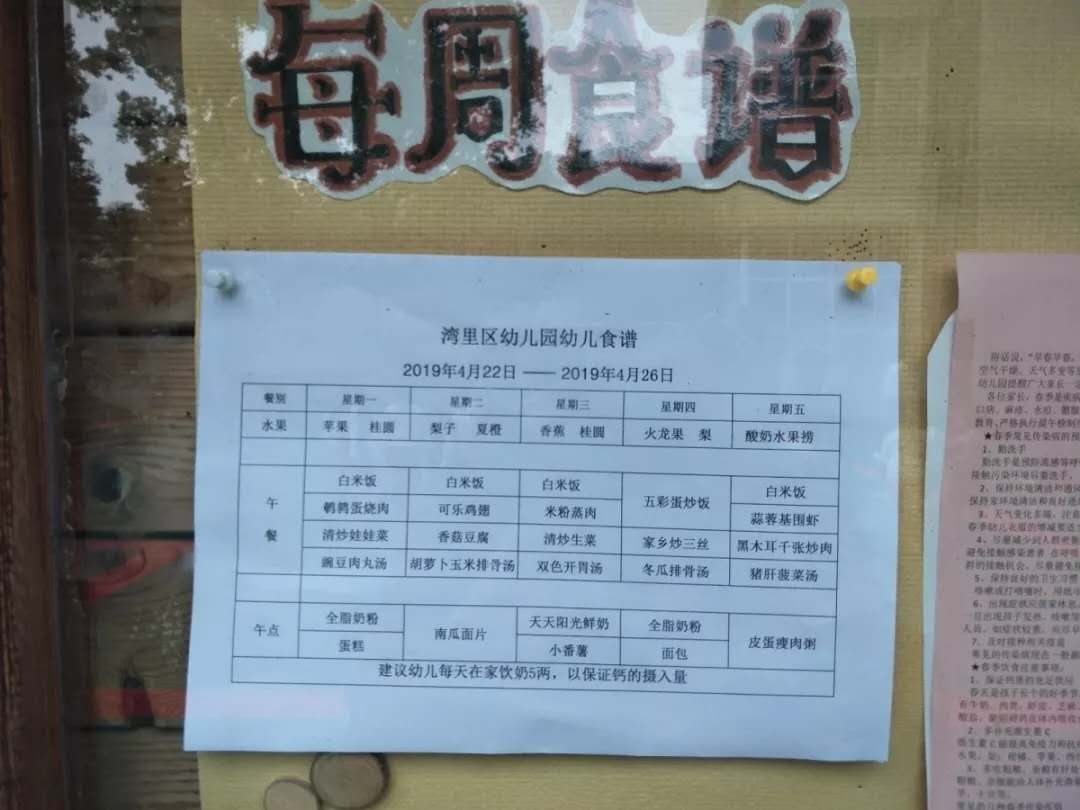 每周食谱
湾里区幼儿园幼儿食谱
2019年4月22日 —— 2019年4月26日
餐别 星期一 星期二 星期三 星期四 星期五
水果 苹果 桂圆 梨子 夏橙 香蕉 桂圆 火龙果 梨 酸奶水果捞
午餐 白米饭 白米饭 白米饭 五彩蛋炒饭 白米饭
鹌鹑蛋烧肉 可乐鸡翅 米粉蒸肉 蒜蓉基围虾
清炒娃娃菜 香菇豆腐 清炒生菜 家乡炒三丝 黑木耳千张炒肉
豌豆肉丸汤 胡萝卜玉米排骨汤 双色开胃汤 冬瓜排骨汤 猪肝菠菜汤
午点 全脂奶粉 南瓜面片 天天阳光鲜奶 全脂奶粉 皮蛋瘦肉粥
蛋糕 小番薯 面包
建议幼儿每天在家饮奶5两，以保证钙的摄入量
俗话说，“早春早春，
空气干燥、天气多变等
幼儿园提醒广大家长一
各位家长：春季是疾病
★春季常见传染病的预
1、勤洗手
勤洗手是预防流感等呼
2、保持环境清洁和通风
3、天气变化多端，注意
春季幼儿衣服的增减要适
4、尽量减少到人群密集
5、保持良好的卫生习惯
★春季饮食注意事项：
1、保证钙质的充足供应
春天是孩子长个的好季节
2、多补充维生素C